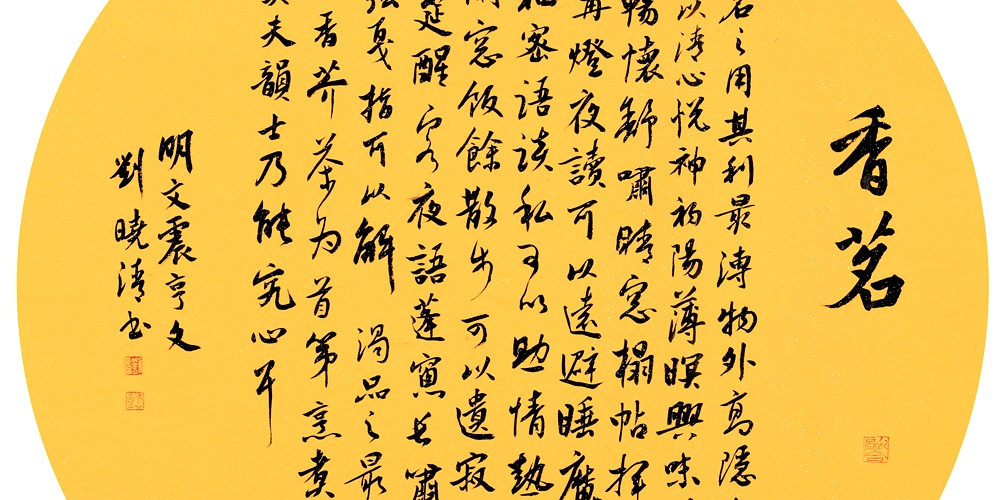 香茗
茗之用其利最溥物外高隱
以清心悦神初陽薄暝興味
暢懷舒嘯晴窓榻帖揮
燈夜讀可以遠避睡魔
袖密語談私可以助情熱
窓飯餘散步可以遺寂
筵醒客夜語蓬窗長嘯
弦戛指可以解渴品之最
香芥茶为首第烹煮
夫韻士乃能究心耳
明文震亨文
劉曉清书